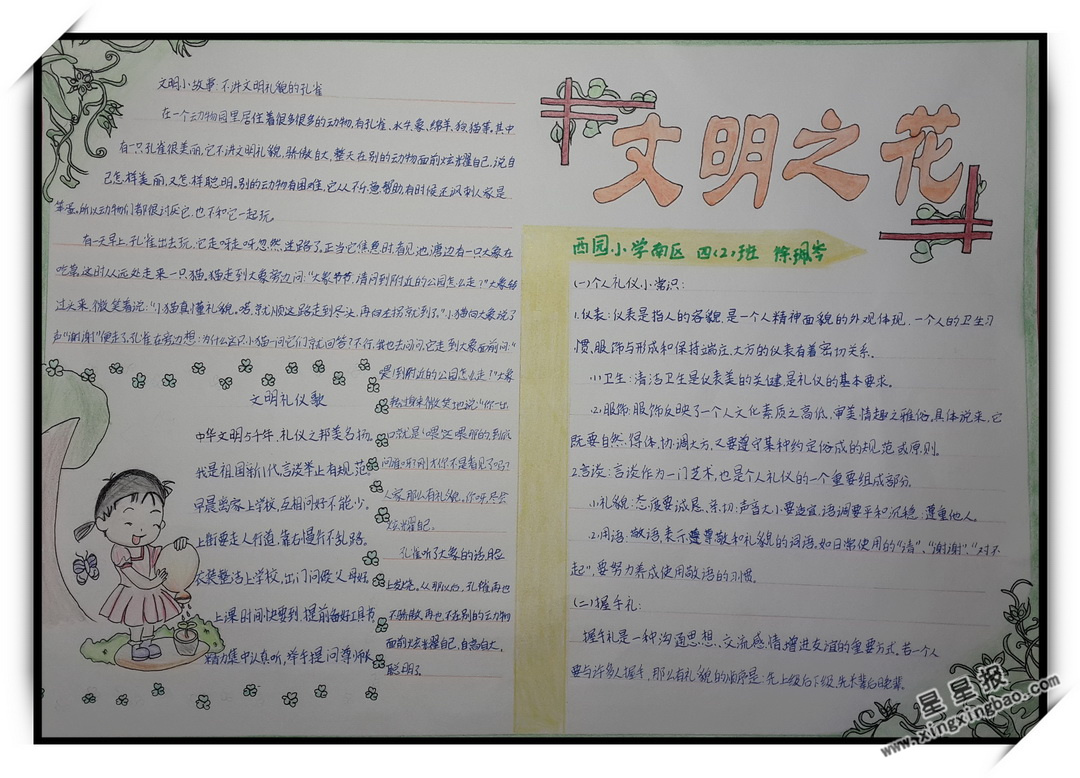 文明之花
西园小学南区 四(2)班 徐珮岑
文明小故事:不讲文明礼貌的孔雀
在一个动物园里居住着很多很多的动物,有孔雀、水牛、象、绵羊、狗、猫等。其中
有一只孔雀很美丽,它不讲文明礼貌,骄傲自大,整天在别的动物面前炫耀自己,说自
己怎样美丽,又怎样聪明。别的动物有困难,它从不愿帮助,有时候还讽刺人家是
笨蛋。所以动物们都很讨厌它,也不和它一起玩。
有一天早上,孔雀出去玩,它走呀走呀,忽然迷路了。正当它焦急时,看见池溏边有一只大象在
吃草,这时从远处走来一只猫。猫走到大象旁边问:"大象爷爷,请问到附近的公园怎么走?"大象转
过头来,微笑着说:"小猫真懂礼貌。喏,就顺这路走到尽头,再向左拐就到了。"小猫向大象说了
声"谢谢"便走了,孔雀在旁边想:为什么这只小猫一问它们就回答?不行,我也去问问,它走到大象面前问:"
喂!到附近的公园怎么走?"大象
转过身来微笑地说:"你一出
口就是'喂'这'喂'那的,到底
问谁呀?刚才你不是看见了吗?
人家那么有礼貌。你呀,尽会
炫耀自己。
孔雀听了大象的话,脸
上发烧。从那以后,孔雀再也
不骄傲,再也不在别的动物
面前炫耀自己,自高自大,
聪明了
文明礼仪歌
中华文明5千年,礼仪之邦美名扬。
我是祖国新1代,言谈举止有规范
早晨离家上学校,互相问好不能少。
上街要走人行道,靠右慢行不乱跑。
衣装整洁上学校,出门问候父母好。
上课时间快要到,提前备好工具书
精力集中认真听,举手提问尊师长
(一)个人礼仪小常识:
1.仪表:仪表是指人的容貌,是一个人精神面貌的外观体现。一个人的卫生习
惯、服饰与形成和保持端庄、大方的仪表有着密切关系。
(1)卫生:清洁卫生是仪表美的关键,是礼仪的基本要求。
(2)服饰:服饰反映了一个人文化素质之高低,审美情趣之雅俗。具体说来,它
既要自然,得体,协调大方,又要遵守某种约定俗成的规范或原则。
2.言谈:言谈作为一门艺术,也是个人礼仪的一个重要组成部分。
(1)礼貌:态度要诚恳、亲切;声音大小要适宜,语调要平和沉稳;尊重他人。
(2)用语:敬语,表示尊敬和礼貌的词语。如日常使用的"请"、"谢谢"、"对不
起",要努力养成使用敬语的习惯。
(二)握手礼:
握手礼是一种沟通思想、交流感情、增进友谊的重要方式。若一个人
要与许多人握手,那么有礼貌的顺序是:先上级后下级,先长辈后晚辈。
星星报
www.xingxingbao.com